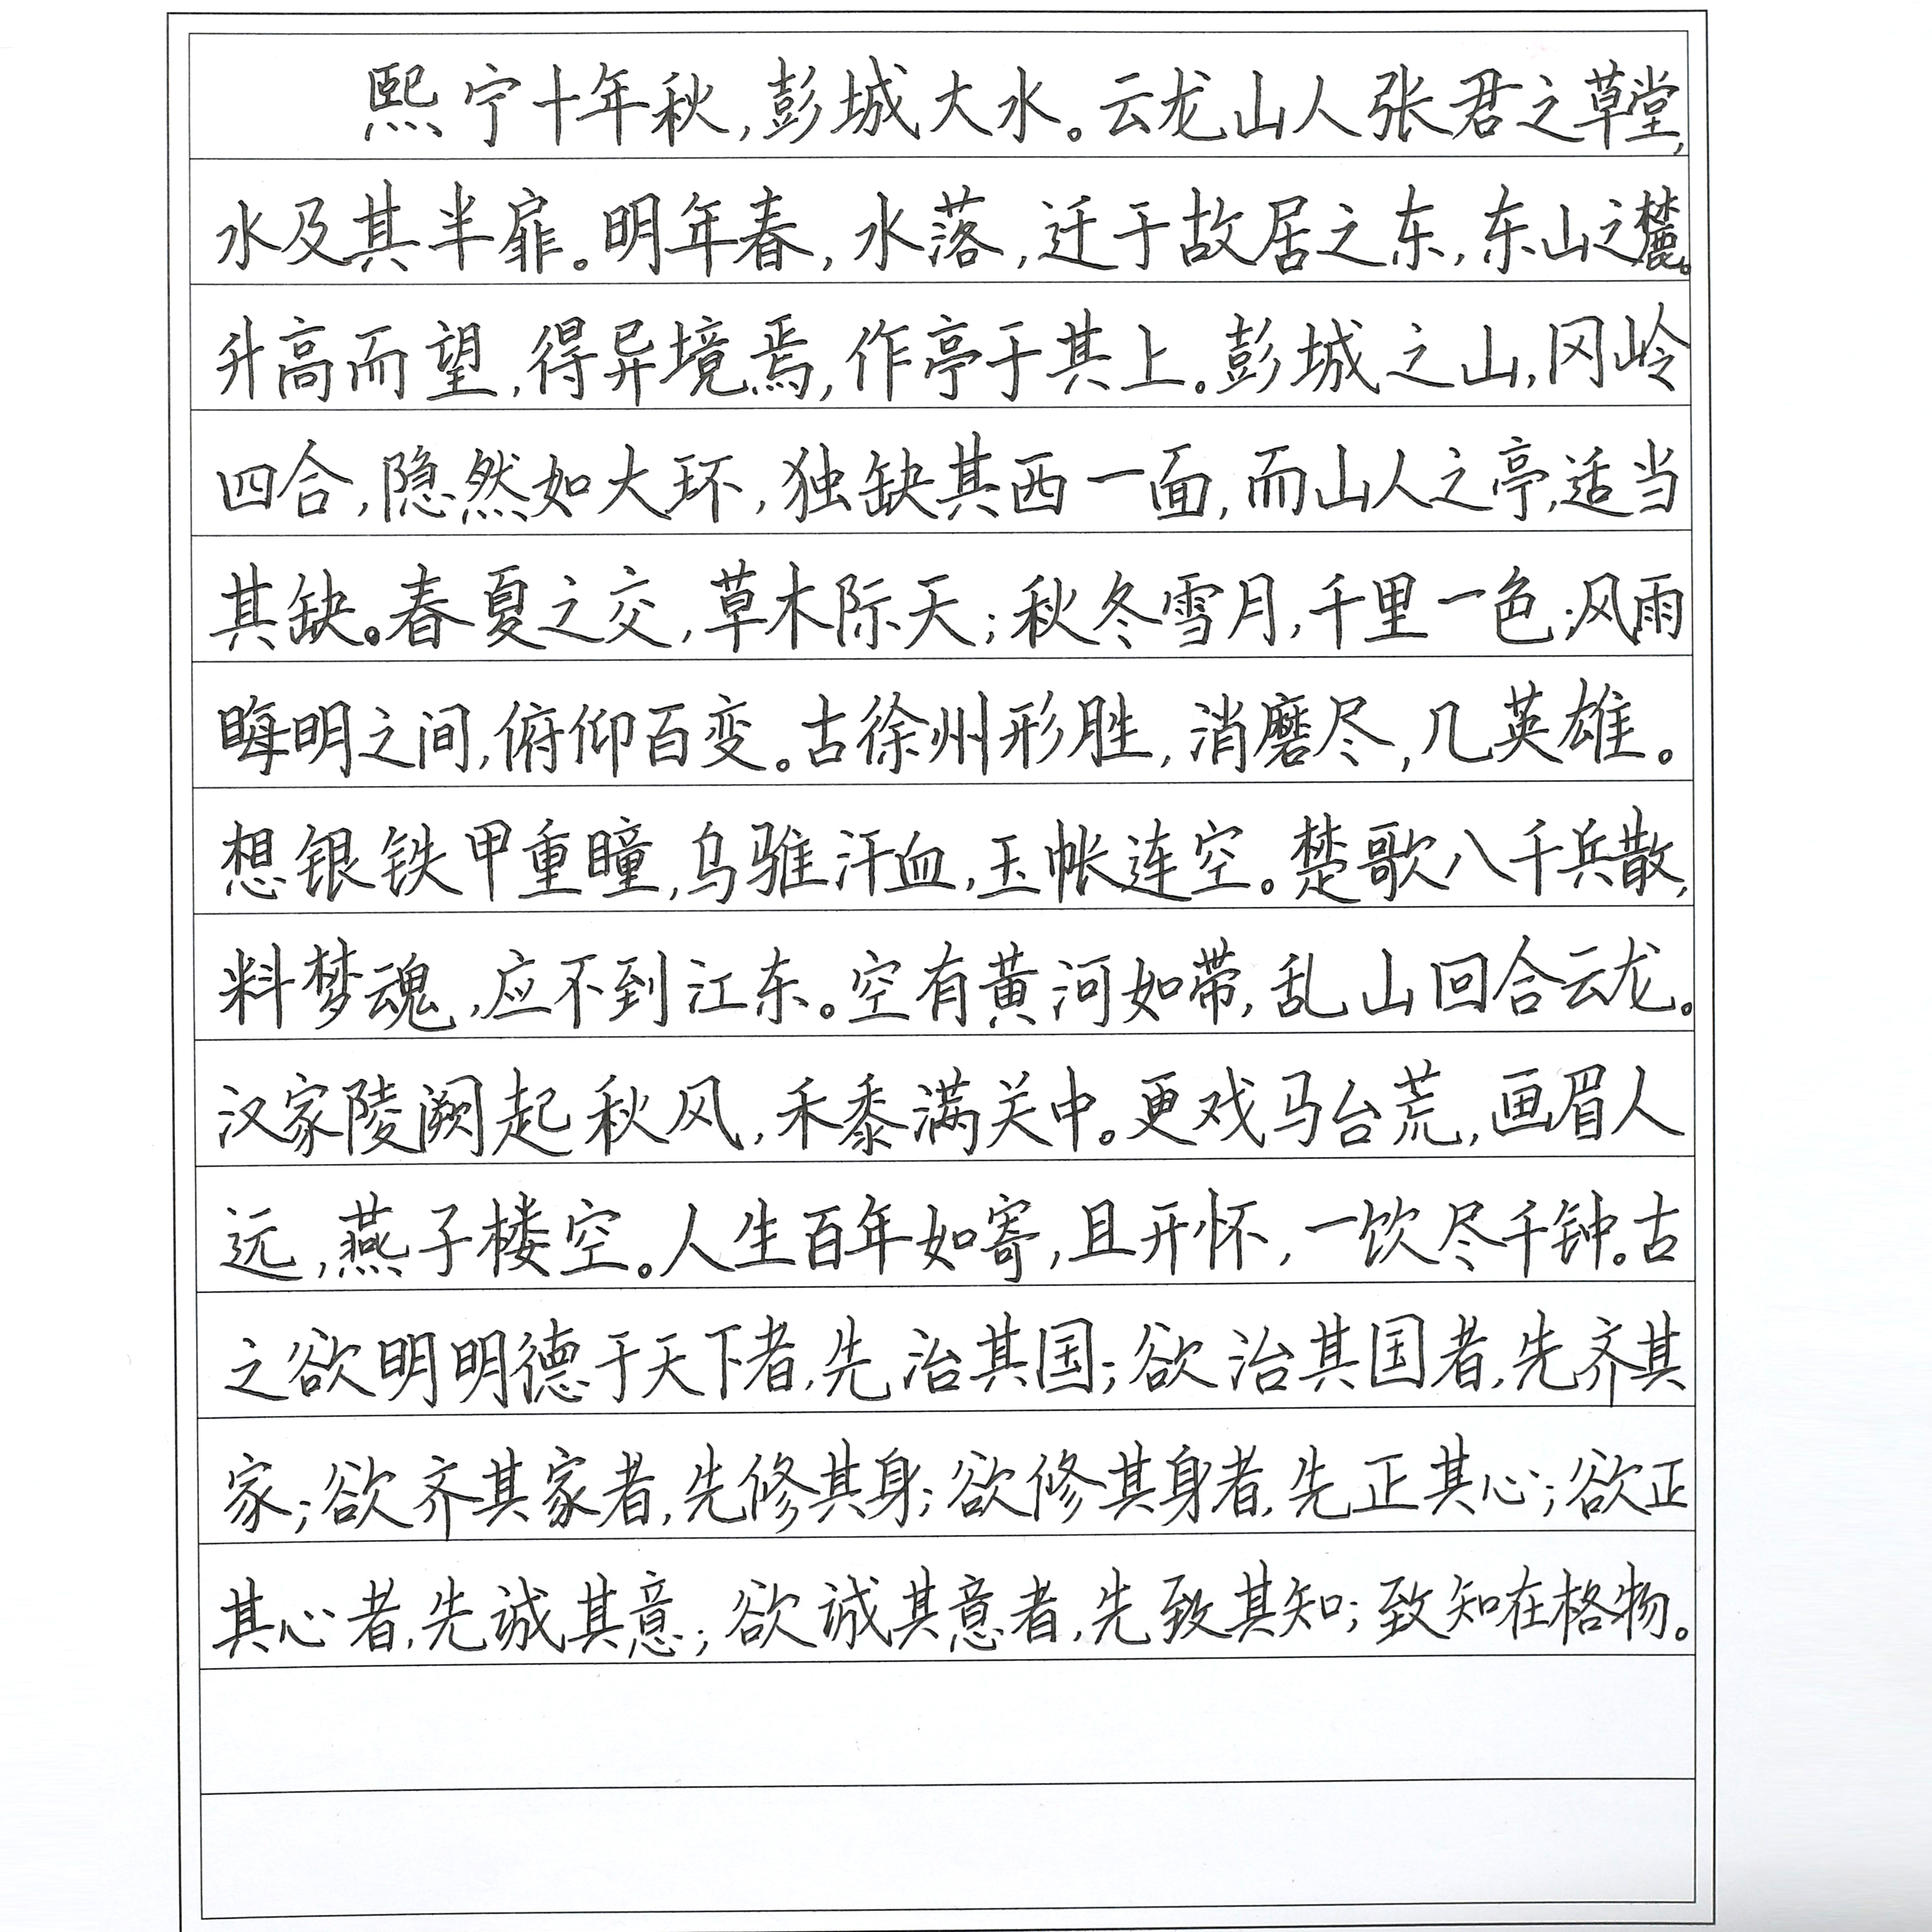 熙宁十年秋,彭城大水。云龙山人张君之草堂,
水及其半扉。明年春,水落,迁于故居之东,东山之麓。
升高而望,得异境焉,作亭于其上。彭城之山,冈岭
四合,隐然如大环,独缺其西一面,而山人之亭,适当
其缺。春夏之交,草木际天;秋冬雪月,千里一色;风雨
晦明之间,俯仰百变。古徐州形胜,消磨尽,几英雄。
想银铁甲重瞳,乌骓汗血,玉帐连空。楚歌八千兵散,
料梦魂,应不到江东。空有黄河如带,乱山回合云龙。
汉家陵阙起秋风,禾黍满关中。更戏马台荒,画眉人
远,燕子楼空。人生百年如寄,且开怀,一饮尽千钟。古
之欲明明德于天下者,先治其国;欲治其国者,先齐其
家;欲齐其家者,先修其身;欲修其身者,先正其心;欲正
其心者,先诚其意;欲诚其意者,先致其知;致知在格物。